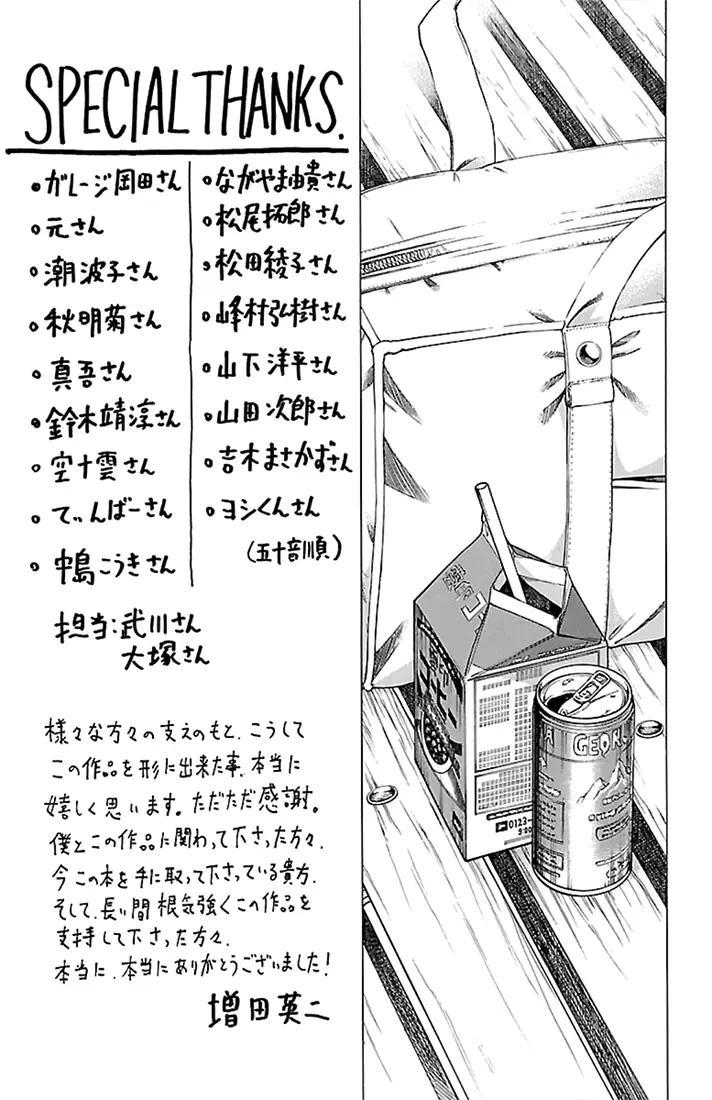 SPECIAL THANKS.
・ガレージ岡田さん
・元さん
・潮波子さん
・秋明菊さん
・真吾さん
・鈴木靖淳さん
・空十雲さん
・てぃんばーさん
・中島こうきさん
・ながやま由貴さん
・松尾拓郎さん
・松田綾子さん
・峰村弘樹さん
・山下洋平さん
・山田次郎さん
・吉木まさかずさん
・ヨシくんさん
(五十音順)
担当:武川さん
大塚さん
様々な方々の支えのもと、こうして
この作品を形に出来た事、本当に
嬉しく思います。ただただ感謝。
僕とこの作品に関わって下さった方々、
今この本を手に取って下さっている貴方、
そして、長い間根気強くこの作品を
支持して下さった方々、
本当に、本当にありがとうございました!
増田英二
コーヒー
0123-
9:00
GEOR